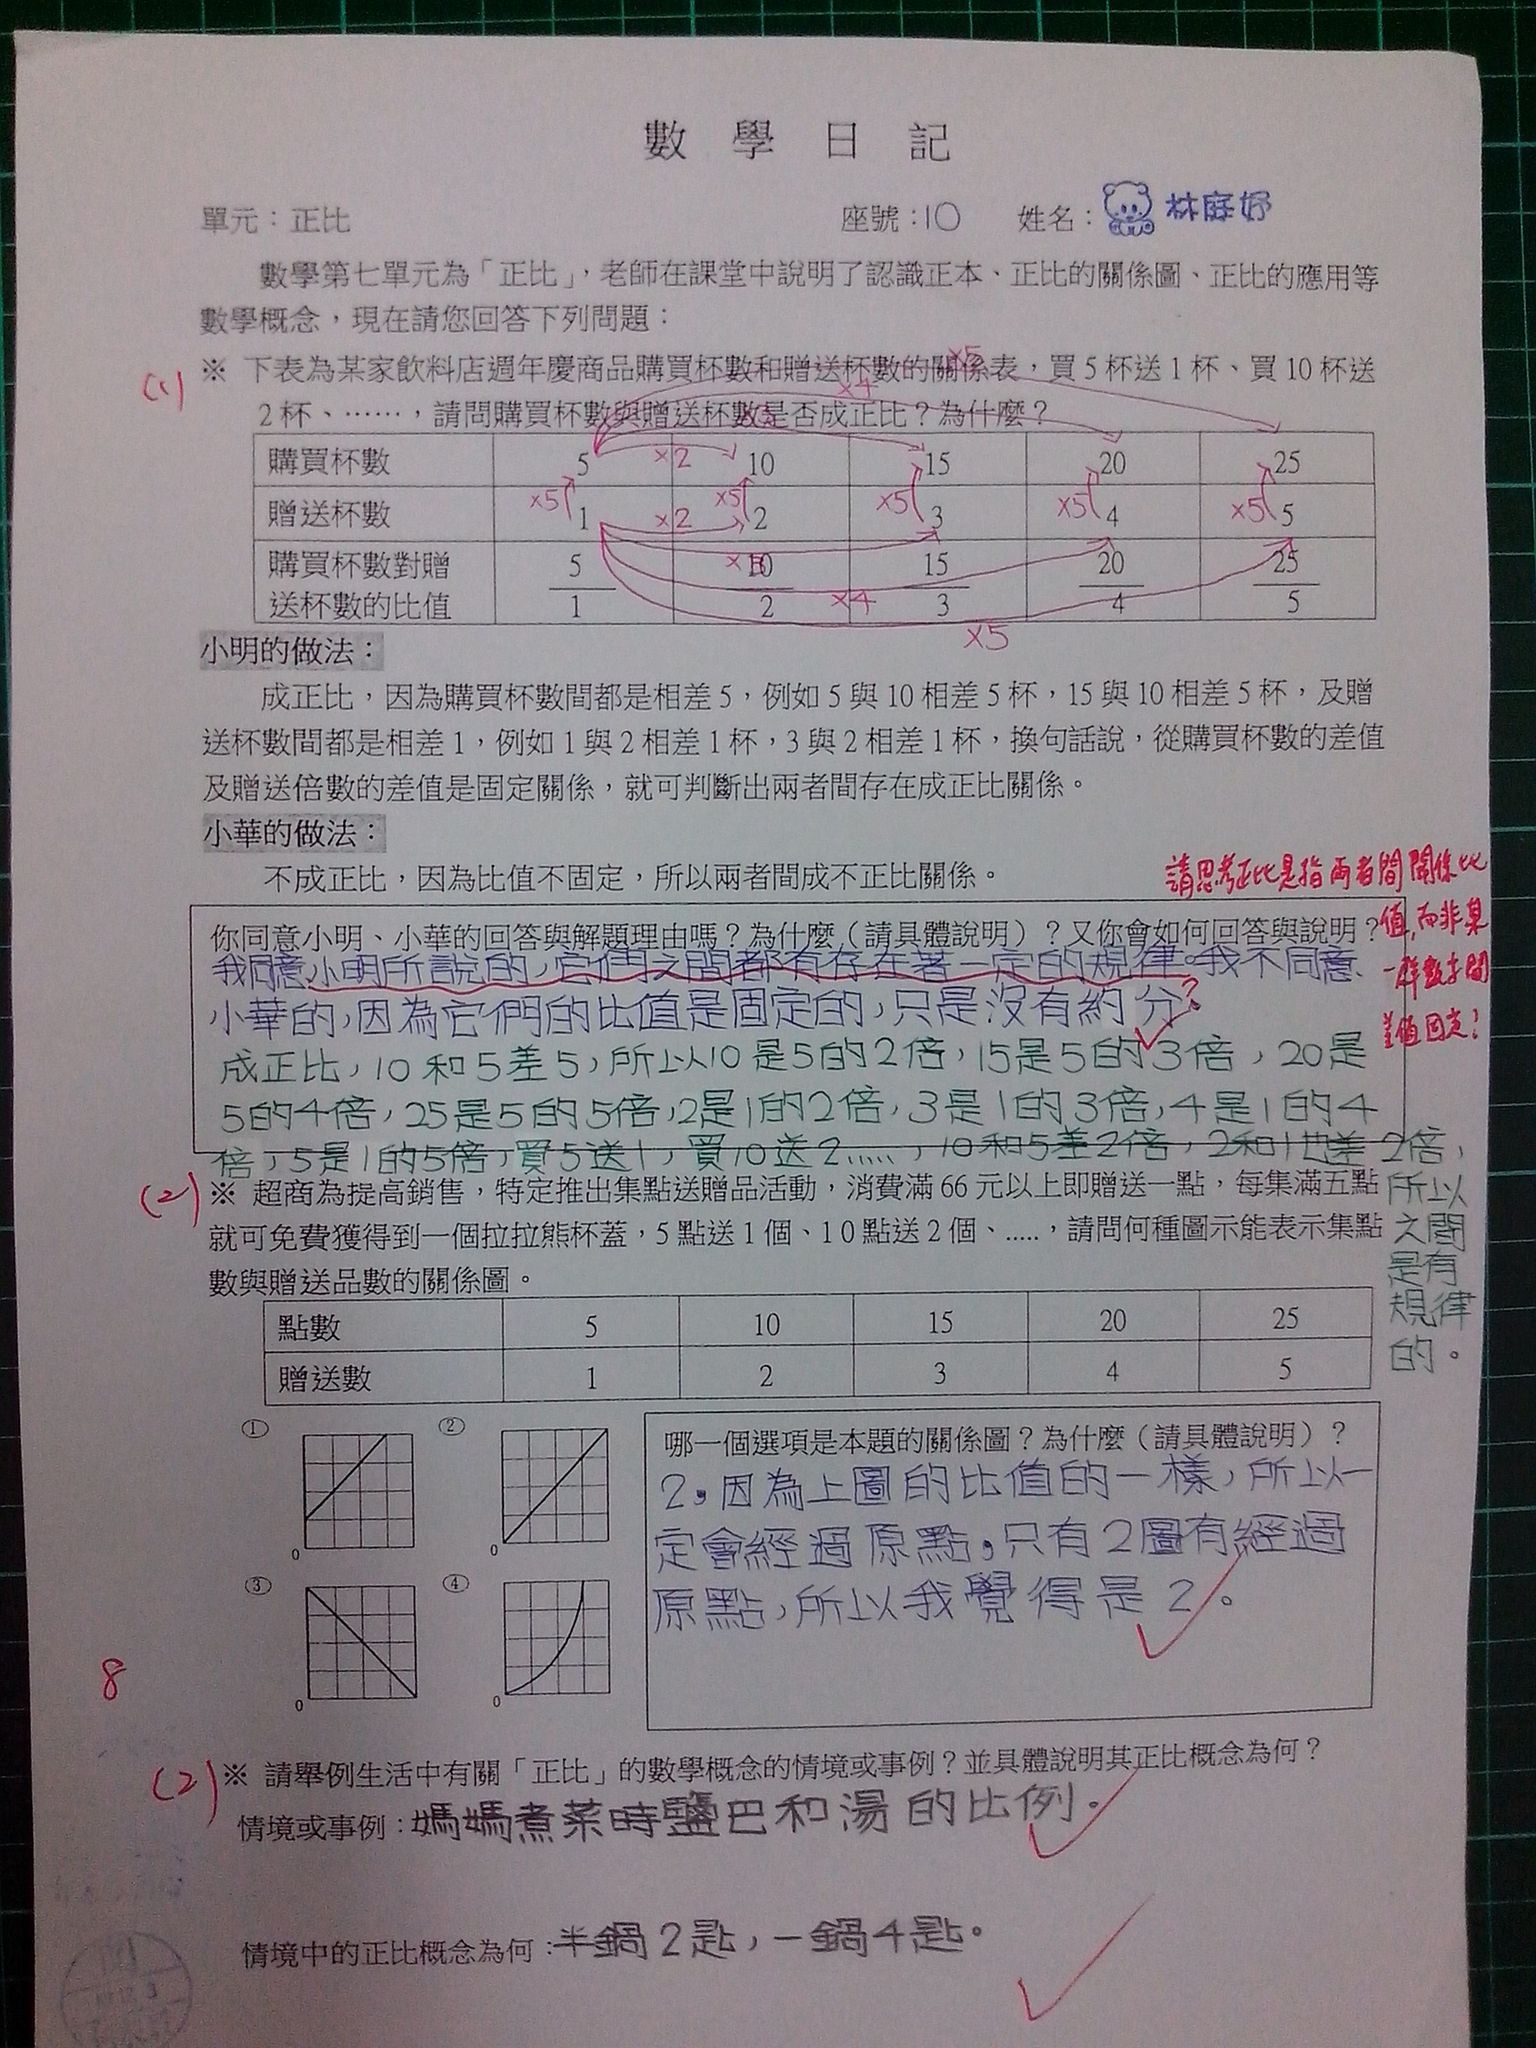 數學日記
單元：正比 座號：10 姓名：林庭妤
數學第七單元為「正比」，老師在課堂中說明了認識正本、正比的關係圖、正比的應用等
數學概念，現在請您回答下列問題：
(1) ※ 下表為某家飲料店週年慶商品購買杯數和贈送杯數的關係表，買5杯送1杯、買10杯送
2杯、……，請問購買杯數與贈送杯數是否成正比？為什麼？
×5
×4
購買杯數 5 ×2 10 15 20 25
×5 ×5 ×5 ×5 ×5
贈送杯數 1 ×2 2 3 4 5
購買杯數對贈 5 10 15 20 25
送杯數的比值 1 2 3 4 5
×4
×5
小明的做法：
成正比，因為購買杯數間都是相差5，例如5與10相差5杯，15與10相差5杯，及贈
送杯數間都是相差1，例如1與2相差1杯，3與2相差1杯，換句話說，從購買杯數的差值
及贈送倍數的差值是固定關係，就可判斷出兩者間存在成正比關係。
小華的做法：
不成正比，因為比值不固定，所以兩者間成不正比關係。
請思考正比是指兩者間關係比
值，而非某
一樣數字間
差值固定！
你同意小明、小華的回答與解題理由嗎？為什麼（請具體說明）？又你會如何回答與說明？
我同意小明所說的，它們之間都有存在著一定的規律。我不同意
小華的，因為它們的比值是固定的，只是沒有約分。
?
成正比，10和5差5，所以10是5的2倍，15是5的3倍，20是
5的4倍，25是5的5倍，2是1的2倍，3是1的3倍，4是1的4
倍，5是1的5倍，買5送1，買10送2.....，10和5差2倍，2和1也差2倍，
所以
之間
是有
規律
的。
(2) ※ 超商為提高銷售，特定推出集點送贈品活動，消費滿66元以上即贈送一點，每集滿五點
就可免費獲得到一個拉拉熊杯蓋，5點送1個、10點送2個、.....，請問何種圖示能表示集點
數與贈送品數的關係圖。
點數 5 10 15 20 25
贈送數 1 2 3 4 5
① ②
0 0
③ ④
0 0
哪一個選項是本題的關係圖？為什麼（請具體說明）？
2。因為上圖的比值的一樣，所以一
定會經過原點。只有2圖有經過
原點，所以我覺得是2。
8
(2) ※ 請舉例生活中有關「正比」的數學概念的情境或事例？並具體說明其正比概念為何？
情境或事例：媽媽煮菜時鹽巴和湯的比例。
情境中的正比概念為何：半鍋2匙，一鍋4匙。